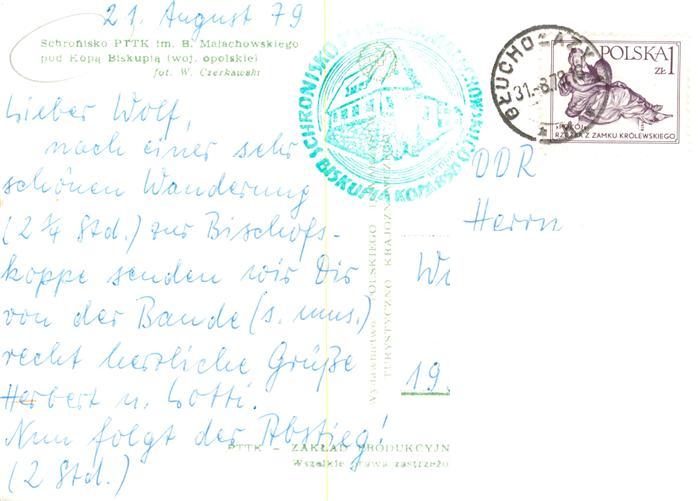 21. August 79
Schronisko PTTK im. B. Małachowskiego
pod Kopą Biskupią (woj. opolskie)
fot. W. Czerkawski
Lieber Wolf,
nach einer sehr
schönen Wanderung
(2 ¼ Std.) zur Bischofs-
koppe senden wir Dir
von der Bande (s. ums.)
recht herzliche Grüße
Herbert u. Lotti.
Nun folgt der Abstieg!
(2 Std.)
SCHRONISKO
BISKUPIA KOPA
GŁUCHOŁAZY
31.-8.79
POLSKA 1
ZŁ
RZEŹBA Z ZAMKU KRÓLEWSKIEGO
DDR
Herrn
Wi
19.
Wydawnictwo POLSKIEGO
TURYSTYCZNO KRAJOZN
PTTK – ZAKŁAD PRODUKCYJN
Wszelkie prawa zastrzeżo